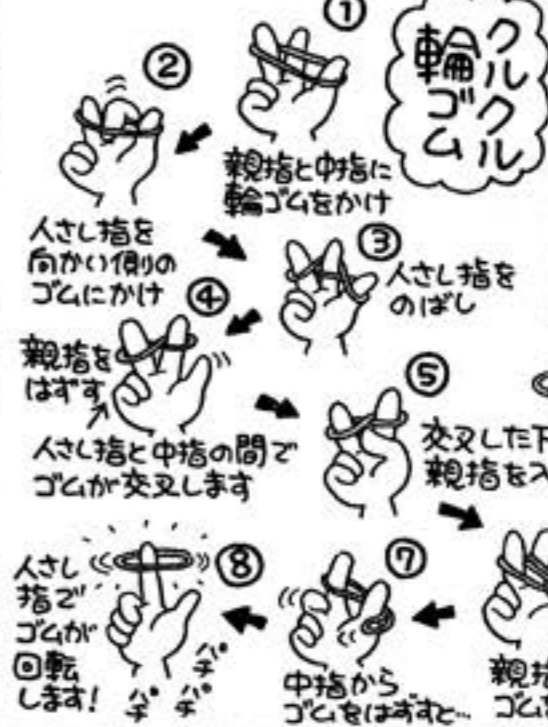 クルクル
輪ゴム
①
親指と中指に
輪ゴムをかけ
②
人さし指を
向かい側の
ゴムにかけ
③
人さし指を
のばし
④
親指を
はずす
人さし指と中指の間で
ゴムが交叉します
⑤
交叉した下
親指を入
親指
ゴムを
⑦
中指から
ゴムをはずすと…
⑧
人さし
指で
ゴムが
回転
します!
パチ
パチ
パチ